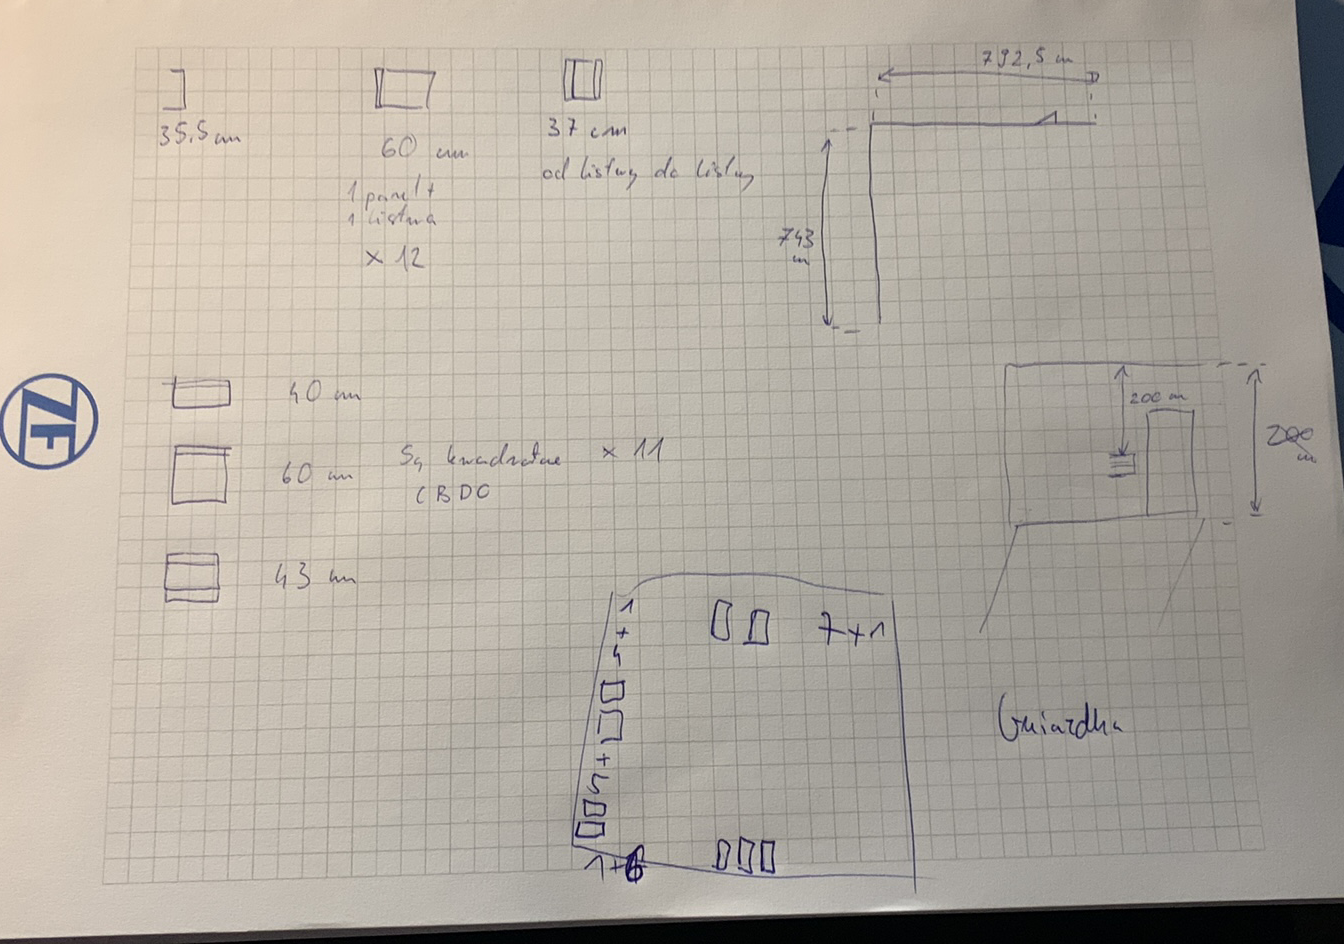 35,5 cm
60 cm
1 panel +
1 listwa
x 12
37 cm
od listwy do listwy
792,5 cm
743
cm
40 cm
60 cm
Są kwadratae x 11
CBDO
43 cm
200 cm
200
cm
ZF
1
+
4
+
1+6
7+1
Gniazdka